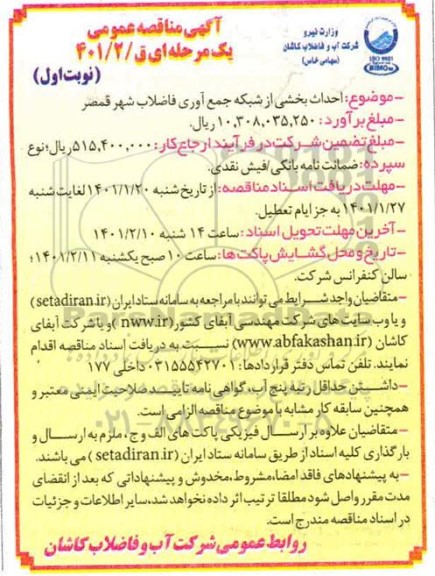 آگهی مناقصه عمومی
یک مرحله ای ق/۴۰۱/۲
(نوبت اول)
وزارت نیرو
شرکت آب و فاضلاب کاشان
(سهامی خاص)
ISO 9001
-موضوع: احداث بخشی از شبکه جمع آوری فاضلاب شهر قمصر
-مبلغ برآورد: ۱۰,۳۰۸,۰۳۵,۲۵۰ ریال.
-مبلغ تضمین شرکت در فرآیند ارجاع کار: ۵۱۵,۴۰۰,۰۰۰ ریال؛ نوع
سپرده: ضمانت نامه بانکی/فیش نقدی.
-مهلت دریافت اسناد مناقصه: از تاریخ شنبه ۱۴۰۱/۱/۲۰ لغایت شنبه
۱۴۰۱/۱/۲۷ به جز ایام تعطیل.
-آخرین مهلت تحویل اسناد: ساعت ۱۴ شنبه ۱۴۰۱/۲/۱۰
-تاریخ و محل گشایش پاکت ها: ساعت ۱۰ صبح یکشنبه ۱۴۰۱/۲/۱۱؛
سالن کنفرانس شرکت.
-متقاضیان واجد شرایط می توانند با مراجعه به سامانه ستاد ایران (setadiran.ir)
و یا وب سایت های شرکت مهندسی آبفای کشور (nww.ir) و یا شرکت آبفای
کاشان (www.abfakashan.ir) نسبت به دریافت اسناد مناقصه اقدام
نمایند. تلفن تماس دفتر قراردادها: ۰۳۱۵۵۵۴۲۷۰۱ داخلی ۱۷۷
-داشتن حداقل رتبه پنج آب، گواهی نامه تایید صلاحیت ایمنی معتبر و
همچنین سابقه کار مشابه با موضوع مناقصه الزامی است.
-متقاضیان علاوه بر ارسال فیزیکی پاکت های الف و ج، ملزم به ارسال و
بارگذاری کلیه اسناد از طریق سامانه ستاد ایران (setadiran.ir) می باشند.
-به پیشنهادهای فاقد امضا، مشروط، مخدوش و پیشنهاداتی که بعد از انقضای
مدت مقرر واصل شود مطلقا ترتیب اثر داده نخواهد شد، سایر اطلاعات و جزئیات
در اسناد مناقصه مندرج است.
روابط عمومی شرکت آب و فاضلاب کاشان